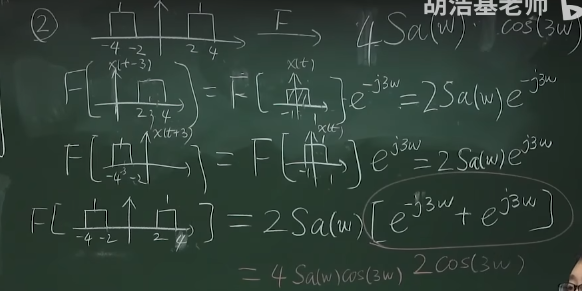 胡浩基老师 b
② -4 -2 2 4 F 4Sa(w)·cos(3w)
F[x(t-3) 2 3 4] = F[x(t) -1 1]·e^{-j3w} = 2Sa(w)e^{-j3w}
F[x(t+3) -4 -3 -2] = F[x(t) -1 1]e^{j3w} = 2Sa(w)e^{j3w}
F[-4 -2 2 4] = 2Sa(w)[e^{-j3w} + e^{j3w}]
= 4Sa(w)cos(3w) 2cos(3w)